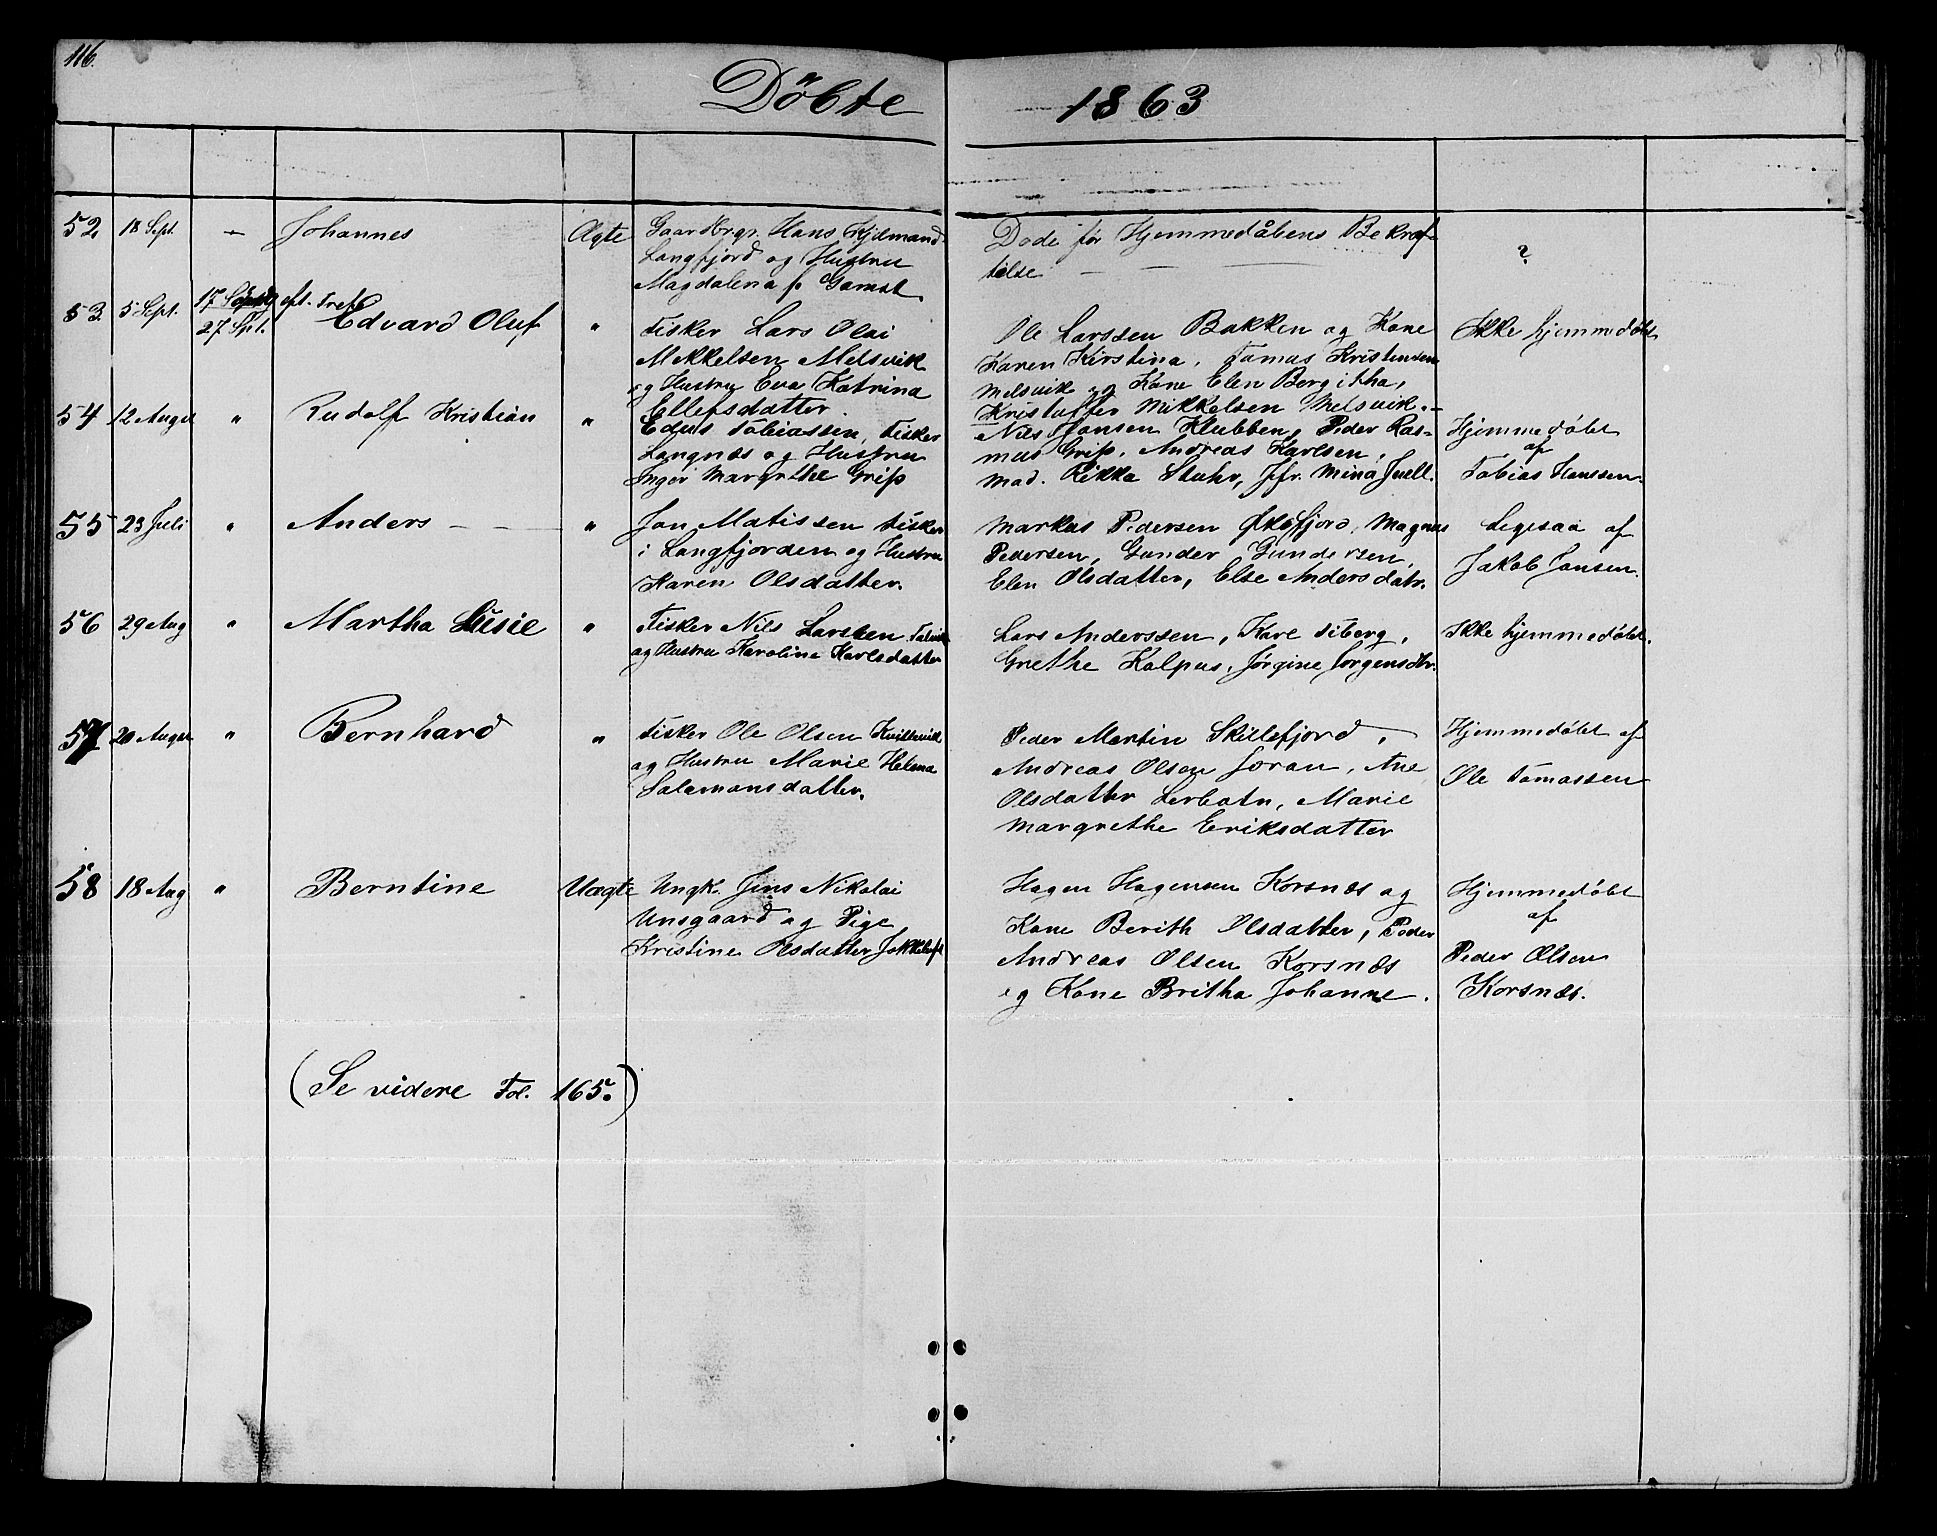 116.
Döbte 1863
52. 18 Sept. — Johannes Ægte Gaardbrgr. Hans Hjelmand
Langfjord og Hustru
Magdalena f. Gamst
Døde før Hjemmedåbens Bekræf
telse — — —
?
53. 5 Sept. 17 Septbr eft. Tref.
27 Spt. Edvard Oluf " Fisker Lars Olai
Mekkelsen Melsvik
og Hustru Eva Katrina
Ellefsdatter.
Ole Larssen Bakken og Kone
Karen Kirstina, Tomas Kristensen
Melsvik og Kone Elen Bergitha,
Kristoffer Mikkelsen Melsvik.—
Ikke hjemmedøbt
54 12 August " Rudolf Kristian " Edvis Tobiassen, Fisker
Langnæs og Hustru
Inger Margrethe Grip
Nils Jansen Klubben, Peder Ras-
mus Grip, Andreas Karlsen,
Mad. Rikka Stuhr, Jfr. Mina Juell.
Hjemmedøbt
af
Tobias Hanssen.
55 23 Juli " Anders — — " Jon Matissen Fisker
i Langfjorden og Hustru
Karen Olsdatter.
Markus Pedersen Øksfjord, Magnus
Pedersen, Gunder Gundersen,
Elen Olsdatter, Else Andersdatr.
Ligesaa af
Jakob Jansen.
56 29 Aug " Martha Lusie " Fisker Nils Larssen Talvik
og Hustru Karoline Karlsdatter
Lars Anderssen, Kare Fiberg,
Grethe Kalpus, Jørgine Jørgensdtr.
Ikke hjemmedøbt.
57 20 August " Bernhard " Fisker Ole Olsen Kvillevik
og Hustru Marie Helena
Salamonsdatter.
Peder Martin Skillefjord,
Andreas Olsen Joran, Ane
Olsdatter Lerbotn, Marie
Margrethe Eriksdatter
Hjemmedøbt af
Ole Tomassen
58 18 Aug " Berntine Uægte Ungk. Jens Nikolai
Unsgaard og Pige
Kristine Olsdatter Jokkelufj
Hagen Hagensen Korsnæs og
Kone Berith Olsdatter, Peder
Andreas Olsen Korsnæs
og Kone Britha Johanne.
Hjemmedøbt
af
Peder Olsen
Korsnæs.
(Se videre Fol. 165.)